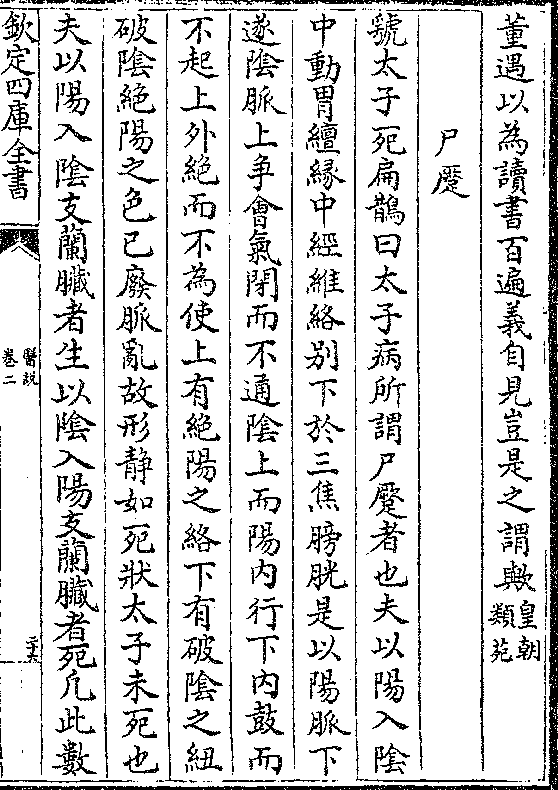 董遇以為讀書百遍義自見豈是之謂歟皇朝類苑
尸蹷
虢太子死扁鵲曰太子病所謂尸蹷者也夫以陽入陰
中動胃繵緣中經維絡別下於三焦膀胱是以陽脈下
遂陰脈上争會氣閉而不通陰上而陽内行下内鼓而
不起上外絶而不為使上有絶陽之絡下有破陰之紐
破陰絶陽之色已廢脈亂故形静如死狀太子未死也
夫以陽入陰支蘭臓者生以陰入陽支蘭臓者死凡此數
欽定四庫全書
醫説
卷二
二十六